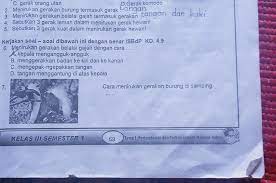 C. gerak orang ulan D. Gerak komodo
1. Menirukan gerakan burung termasuk gerak tangan
2. Menirukan gerakan belalai gajah termasuk gerakan tangan dan kaki
4. Sebutkan 3 gerak lemah dalam menirukan gerak hewan!
5. Sebutkan 3 gerak kuat dalam menirukan gerak hewan!
Kerjakan soal – soal dibawah ini dengan benar !SBdP KD. 4.9
6. Menirukan gerakan belalai gajah dengan cara
A. kepala mengangguk-angguk
B. menggerakkan badan ke kiri dan ke kanan
C. mengepak-ngepakkan tangan
D. tangan menggantung di atas kepala
7. Cara menirukan gerakan burung di samping
KELAS III SEMESTER 1